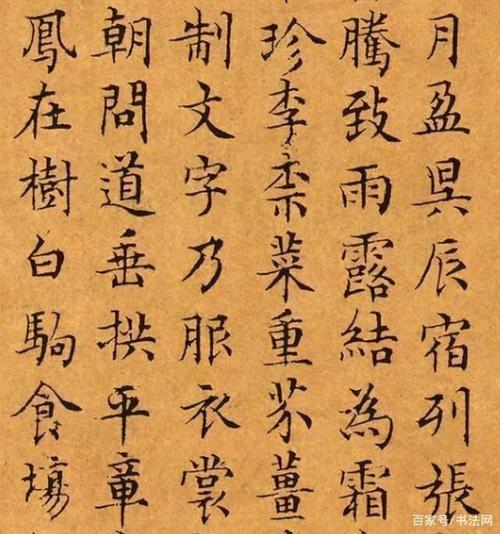 月盈昃辰宿列張
騰致雨露結為霜
珍李柰菜重芥薑
制文字乃服衣裳
朝問道垂拱平章
鳳在樹白駒食場
百家号/书法网